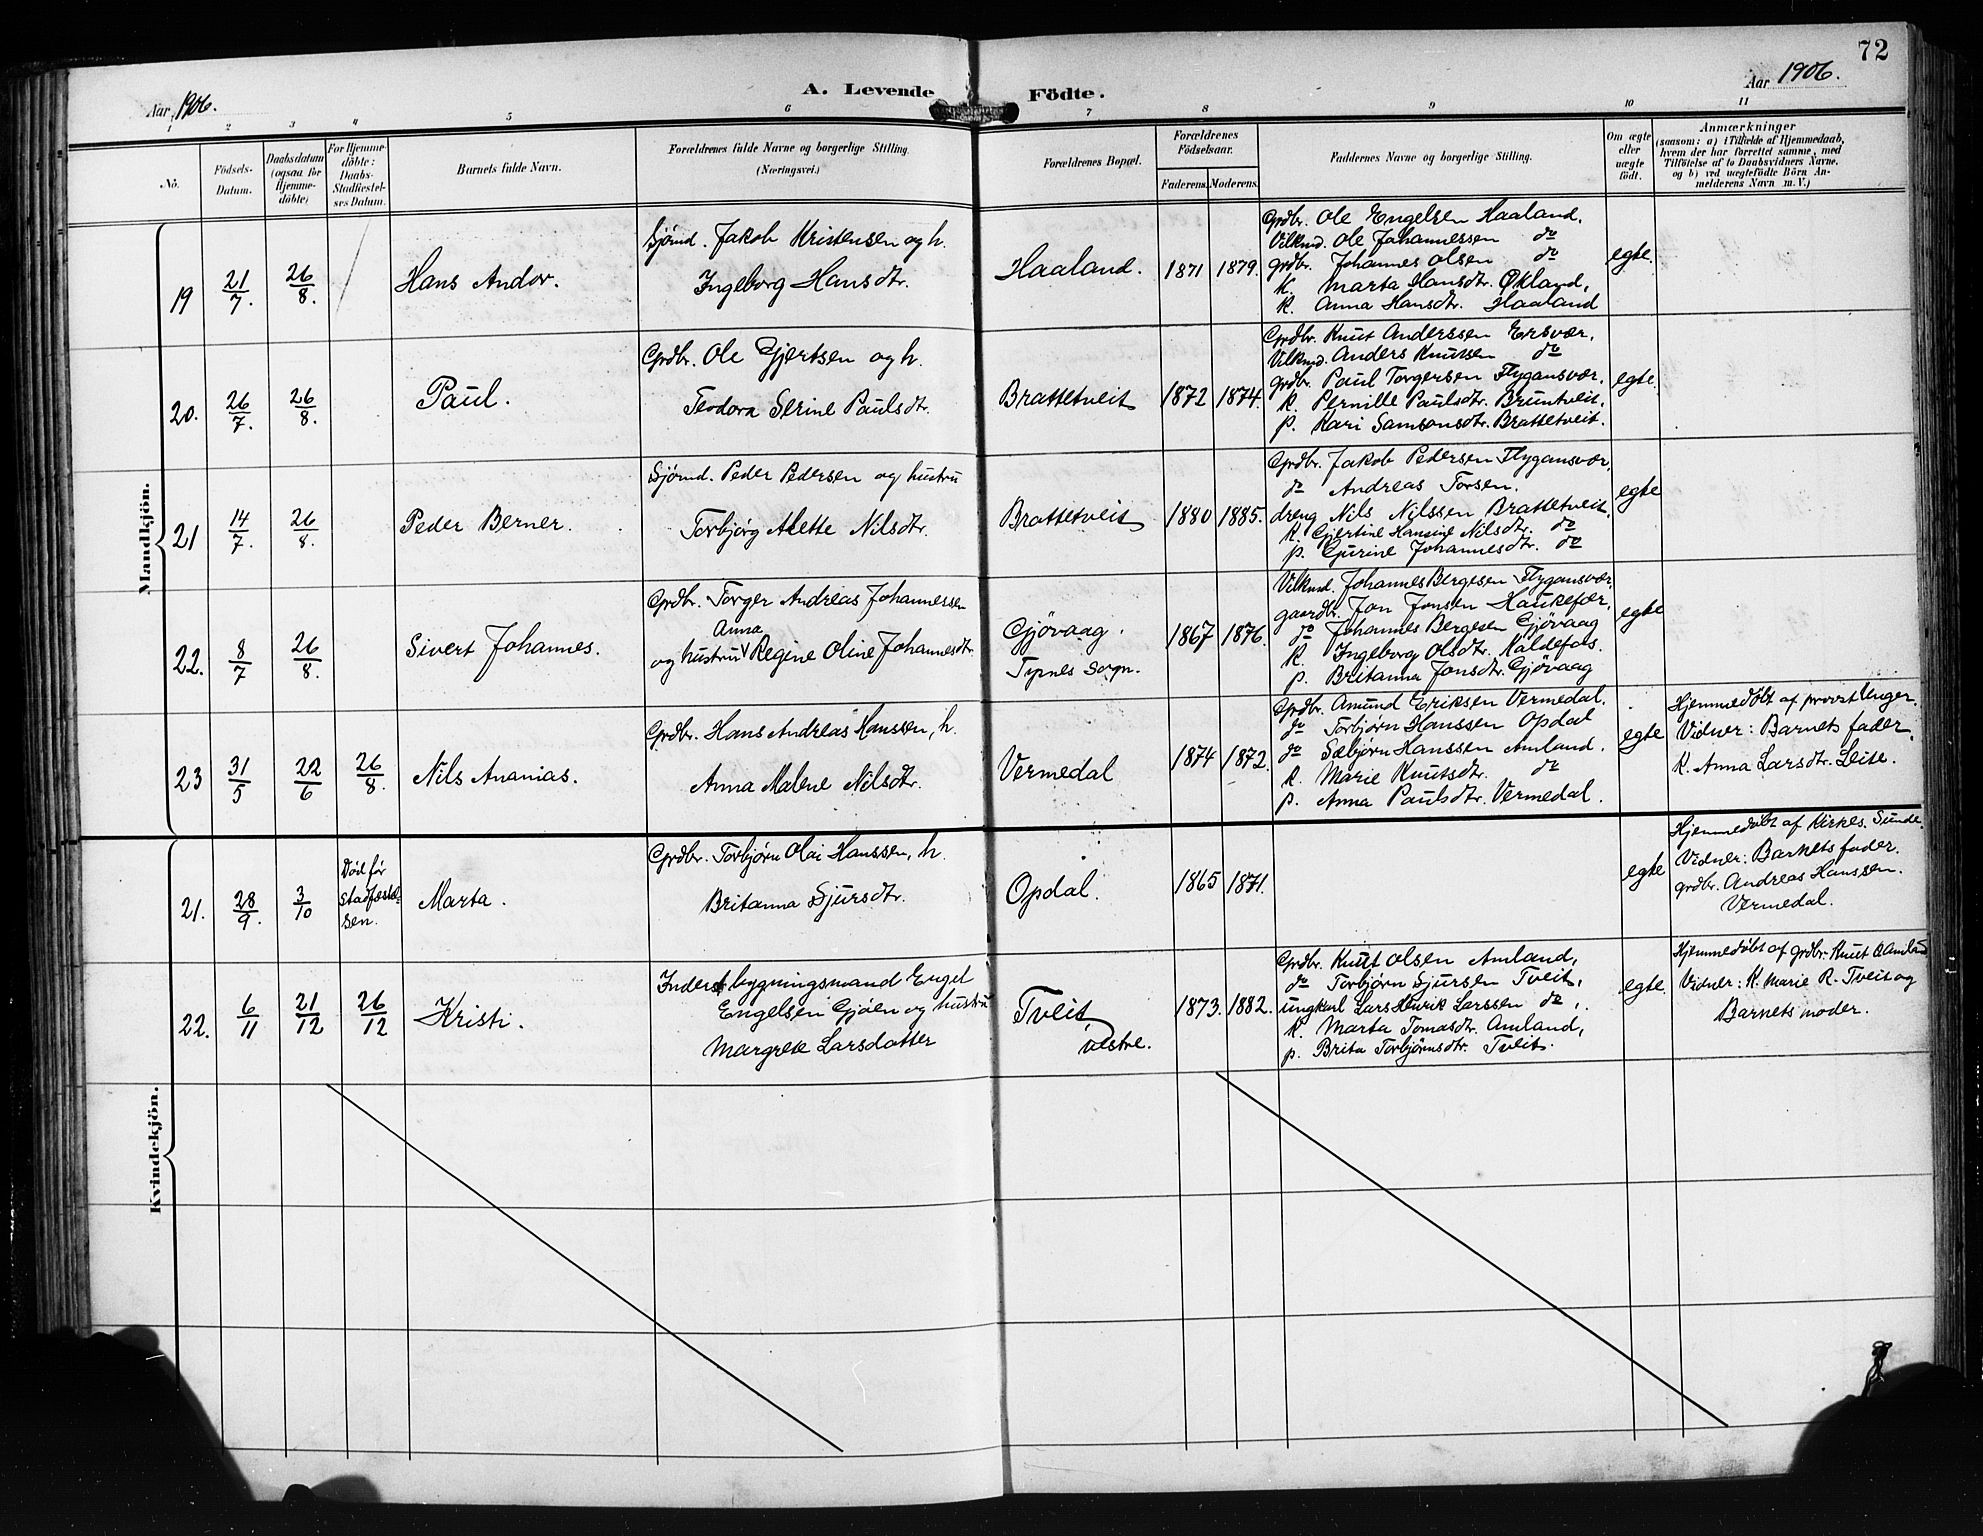 72
Aar 1906.
A. Levende Födte.
Aar 1906.
1 2 3 4 5 6 7 8 9 10 11
No.
Födsels-
Datum.
Daabsdatum
(ogsaa for
Hjemme-
döbte)
For Hjemme-
döbte:
Daabs-
Stadfæstel-
ses Datum.
Barnets fulde Navn.
Forældrenes fulde Navne og borgerlige Stilling
(Næringsvei.)
Forældrenes Bopæl.
Forældrenes
Födselsaar.
Faderens. Moderens.
Faddernes Navne og borgerlige Stilling.
Om ægte
eller
uægte
födt.
Anmærkninger
(saasom: a) i Tilfælde af Hjemmedaab,
hvem der har forrettet samme, med
Tilföielse af to Daabsvidners Navne.
og b) ved uægtefödte Börn An-
melderens Navn m. V.)
Mandkjön.
19 21/7. 26/8. Hans Andor.
Sjømd. Jakob Kristensen og h.
Ingeborg Hansdtr.
Haaland. 1871 1879.
Grdbr. Ole Engelsen Haaland.
Vilkmd. Ole Johannessen do
grdbr. Johannes Olsen do
K. Marta Hansdtr. Økland,
K. Anna Hansdtr. Haaland
egte.
20. 26/7. 26/8. Paul.
Grdbr. Ole Gjertsen og h.
Teodora Serine Paulsdtr.
Brattetveit 1872 1874.
Grdbr. Knut Anderssen Ersvær.
Vilkmd. Anders Knutsen do
grdbr. Paul Torgersen Flygansvær.
K. Pernille Paulsdtr. Bruntveit.
p. Kari Samsonsdtr. Brattetveit.
egte.
21 14/7. 26/8. Peder Berner.
Sjømd. Peder Pedersen og hustru
Torbjørg Alette Nilsdtr.
Brattetveit 1880 1885.
Grdbr. Jakob Pedersen Flygansvær,
do Andreas Torsen.
dreng Nils Nilssen Brattetveit.
K. Gjertine Hansine Nilsdtr. do
p. Gurine Johannesdtr. do
egte
22. 8/7 26/8. Sivert Johannes.
Grdbr. Torger Andreas Johannessen
Anna
og hustru Regine Oline Johannesdtr.
Gjövaag.
Tysnes sogn.
1867 1876.
Vilkmd. Johannes Bergesen Flygansvær,
gaardbr. Jon Jonsen Haukefær,
do Johannes Bergesen Gjövaag
K. Ingeborg Olsdtr. Kaldefos.
p. Britanna Jonsdtr. Gjövaag
egte
23 31/5 22/6 26/8. Nils Ananias.
Grdbr. Hans Andreas Hanssen, h.
Anna Malene Nilsdtr.
Vermedal 1874 1872.
Grdbr. Amund Eriksen Vermedal.
do Torbjørn Hanssen Opdal
do Sæbjørn Hanssen Amland.
K. Marie Knutsdtr. do
p. Anna Paulsdtr. Vermedal.
egte
Hjemmedøbt af provst Unger.
Vidner: Barnets fader,
K. Anna Larsdtr. Leite.
Kvindekjön.
21. 28/9. 3/10
Død før
stadfæstel-
sen.
Marta.
Grdbr. Torbjørn Olai Hanssen, h.
Britanna Sjursdtr.
Opdal. 1865 1871.
egte
Hjemmedøbt af Kirkes. Sunde.
Vidner: Barnets fader.
grdbr. Andreas Hanssen.
Vermedal.
22. 6/11 21/12 26/12 Kristi.
Inderst bygningsmand Engel
Engelsen Gjöen og hustru
Margrete Larsdatter
Tveit,
vestre.
1873. 1882.
Grdbr. Knut Olsen Amland,
do Torbjørn Sjursen Tveit,
ungkarl Lars Henrik Larssen do,
K. Marta Tomasdtr. Amland,
p. Brita Torbjørnsdtr. Tveit.
egte.
Hjemmedøbt af grdbr. Knut O Amland
Vidner: K. Marie K. Tveit og
Barnets moder.